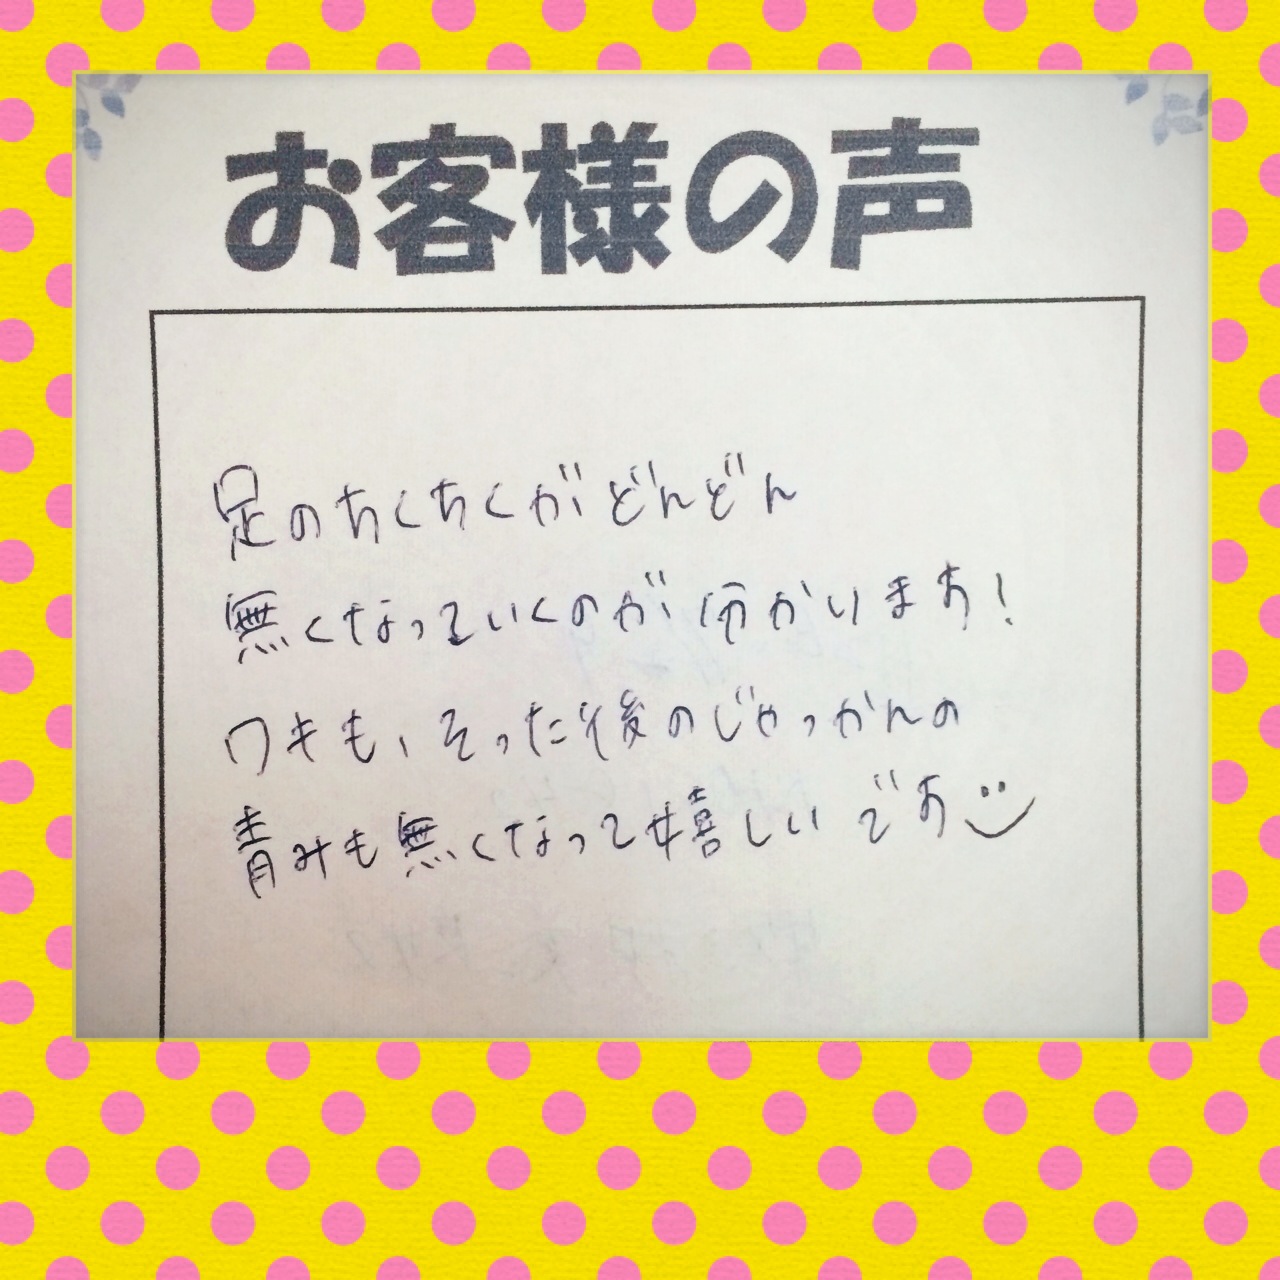 お客様の声
足のちくちくがどんどん
無くなっていくのが分かります!
ワキも、そった後のじゃっかんの
青みも無くなって嬉しいです